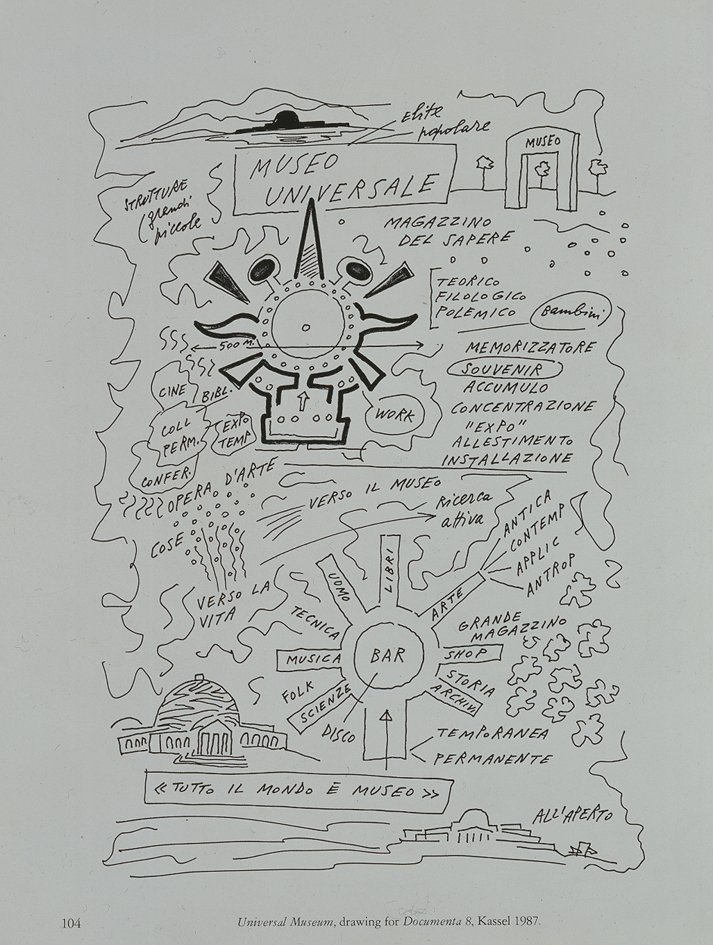 Elite
popolare
MUSEO
UNIVERSALE
MUSEO
STRUTTURE
(grandi
piccole
MAGAZZINO
DEL SAPERE
TEORICO
FILOLOGICO
POLEMICO
Bambini
500 M.
MEMORIZZATORE
SOUVENIR
ACCUMULO
CONCENTRAZIONE
"EXPO"
ALLESTIMENTO
INSTALLAZIONE
CINE
BIBL.
COLL
PERM.
EXPO
TEMP
CONFER.
WORK
OPERA D'ARTE
VERSO IL MUSEO
Ricerca
attiva
COSE
VERSO LA
VITA
ANTICA
CONTEMP
APPLIC
ANTROP
LIBRI
UOMO
ARTE
TECNICA
GRANDE
MAGAZZINO
MUSICA
BAR
SHOP
FOLK
SCIENZE
STORIA
ARCHIV.
DISCO
TEMPORANEA
PERMANENTE
« TUTTO IL MONDO È MUSEO »
ALL'APERTO
104
Universal Museum, drawing for Documenta 8, Kassel 1987.